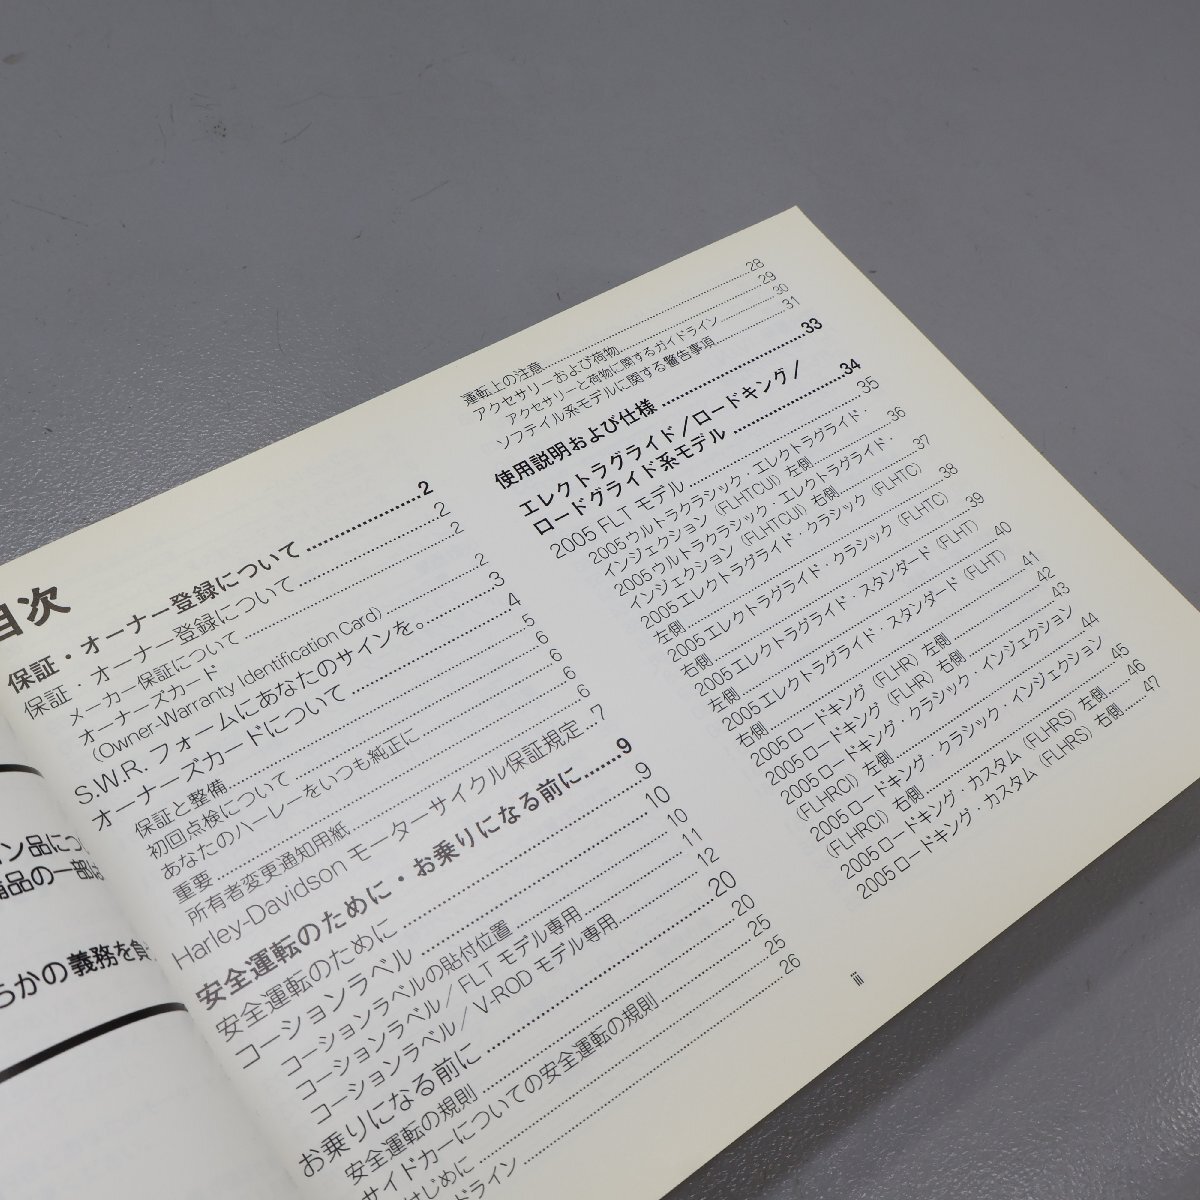 イン品につ
備品の一部は
らかの義務を負
目次
保証・オーナー登録について 2
保証・オーナー登録について 2
メーカー保証について 2
オーナーズカード
(Owner Warranty Identification Card) 2
S.W.R. フォームにあなたのサインを。 3
オーナーズカードについて 4
保証と整備 5
初回点検について 6
あなたのハーレーをいつも純正に 6
重要 6
所有者変更通知用紙 6
Harley-Davidson モーターサイクル保証規定 7
安全運転のために・お乗りになる前に 9
安全運転のために 9
コーションラベル 10
コーションラベルの貼付位置 10
コーションラベル/ FLT モデル専用 11
コーションラベル/ V-ROD モデル専用 12
お乗りになる前に 20
安全運転の規則 20
サイドカーについての安全運転の規則 25
はじめに 25
ドライン 26
運転上の注意 28
アクセサリーおよび荷物 29
アクセサリーと荷物に関するガイドライン 30
ソフテイル系モデルに関する警告事項 31
使用説明および仕様 33
エレクトラグライド/ロードキング/
ロードグライド系モデル 34
2005 FLT モデル 35
2005 ウルトラクラシック・エレクトラグライド・
インジェクション (FLHTCUI) 左側 36
2005 ウルトラクラシック・エレクトラグライド・
インジェクション (FLHTCUI) 右側 37
2005 エレクトラグライド・クラシック (FLHTC)
左側 38
2005 エレクトラグライド・クラシック (FLHTC)
右側 39
2005 エレクトラグライド・スタンダード (FLHT)
左側 40
2005 エレクトラグライド・スタンダード (FLHT)
右側 41
2005 ロードキング (FLHR) 左側 42
2005 ロードキング (FLHR) 右側 43
2005 ロードキング・クラシック・インジェクション
(FLHRCI) 左側 44
2005 ロードキング・クラシック・インジェクション
(FLHRCI) 右側 45
2005 ロードキング・カスタム (FLHRS) 左側 46
2005 ロードキング・カスタム (FLHRS) 右側 47
iii